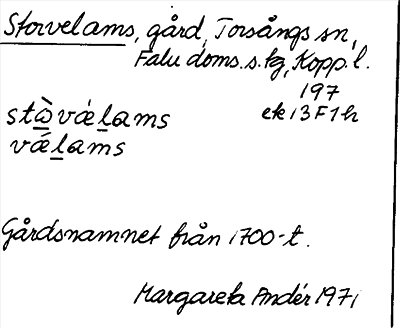 Storvelams, gård, Torsångs sn,
Falu doms. s. tg, Kopp. l.
197
ek 13 F 1 h
stɷ̀vǽlams
vǽlams
Gårdsnamnet från 1700-t.
Margareta Andér 1971